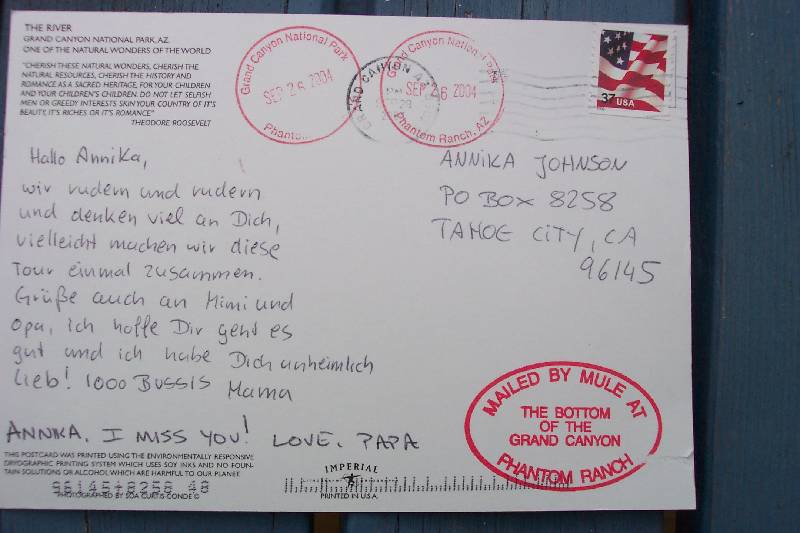 THE RIVER
GRAND CANYON NATIONAL PARK, AZ.
ONE OF THE NATURAL WONDERS OF THE WORLD
"CHERISH THESE NATURAL WONDERS, CHERISH THE
NATURAL RESOURCES, CHERISH THE HISTORY AND
ROMANCE AS A SACRED HERITAGE, FOR YOUR CHILDREN
AND YOUR CHILDREN'S CHILDREN. DO NOT LET SELFISH
MEN OR GREEDY INTERESTS SKIN YOUR COUNTRY OF IT'S
BEAUTY, IT'S RICHES OR IT'S ROMANCE"
THEODORE ROOSEVELT
Grand Canyon National Park
SEP 26 2004
Phantom
GRAND CANYON
Grand Canyon National Park
SEP 26 2004
Phantom Ranch, AZ
37 USA
Hallo Annika,
wir rudern und rudern
und denken viel an Dich,
vielleicht machen wir diese
Tour einmal zusammen.
Grüße auch an Mimi und
Opa, ich hoffe Dir geht es
gut und ich habe Dich unheimlich
lieb! 1000 BUSSIS Mama
ANNIKA, I MISS YOU! LOVE, PAPA
ANNIKA JOHNSON
PO BOX 8258
TAHOE CITY, CA
96145
MAILED BY MULE AT
THE BOTTOM
OF THE
GRAND CANYON
PHANTOM RANCH
THIS POSTCARD WAS PRINTED USING THE ENVIRONMENTALLY RESPONSIVE
DRYOGRAPHIC PRINTING SYSTEM WHICH USES SOY INKS AND NO FOUN-
TAIN SOLUTIONS OR ALCOHOL WHICH ARE HARMFUL TO OUR PLANET
96145+8258 48
PHOTOGRAPHED BY SOA CURTIS CONDE ©
IMPERIAL
PRINTED IN U.S.A.